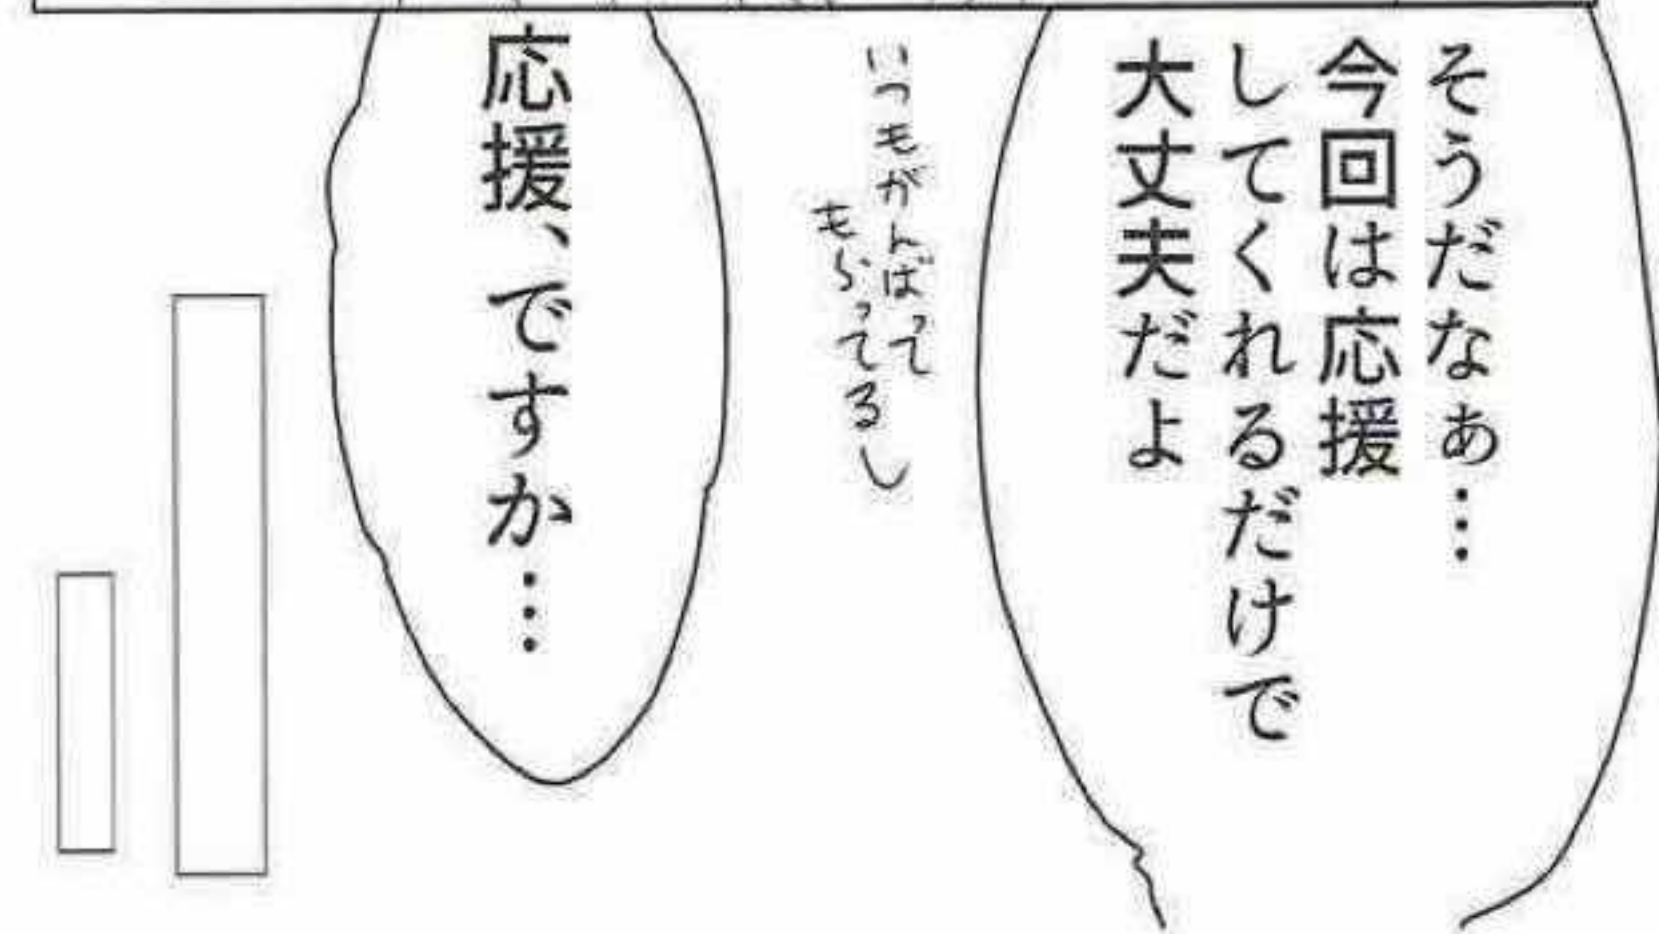 そうだなぁ…
今回は応援
してくれるだけで
大丈夫だよ
いつもがんばって
もらってるし
応援、ですか…